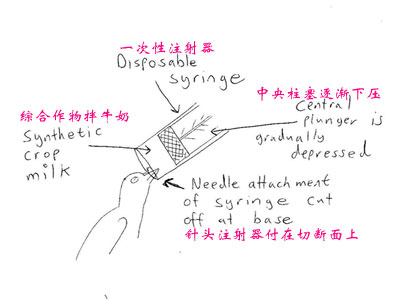 一次性注射器
Disposable
syringe
中央柱塞逐渐下压
Central
plunger is
gradually
depressed
综合作物拌牛奶
Synthetic
crop
milk
Needle attachment
of syringe cut
off at base
针头注射器付在切断面上